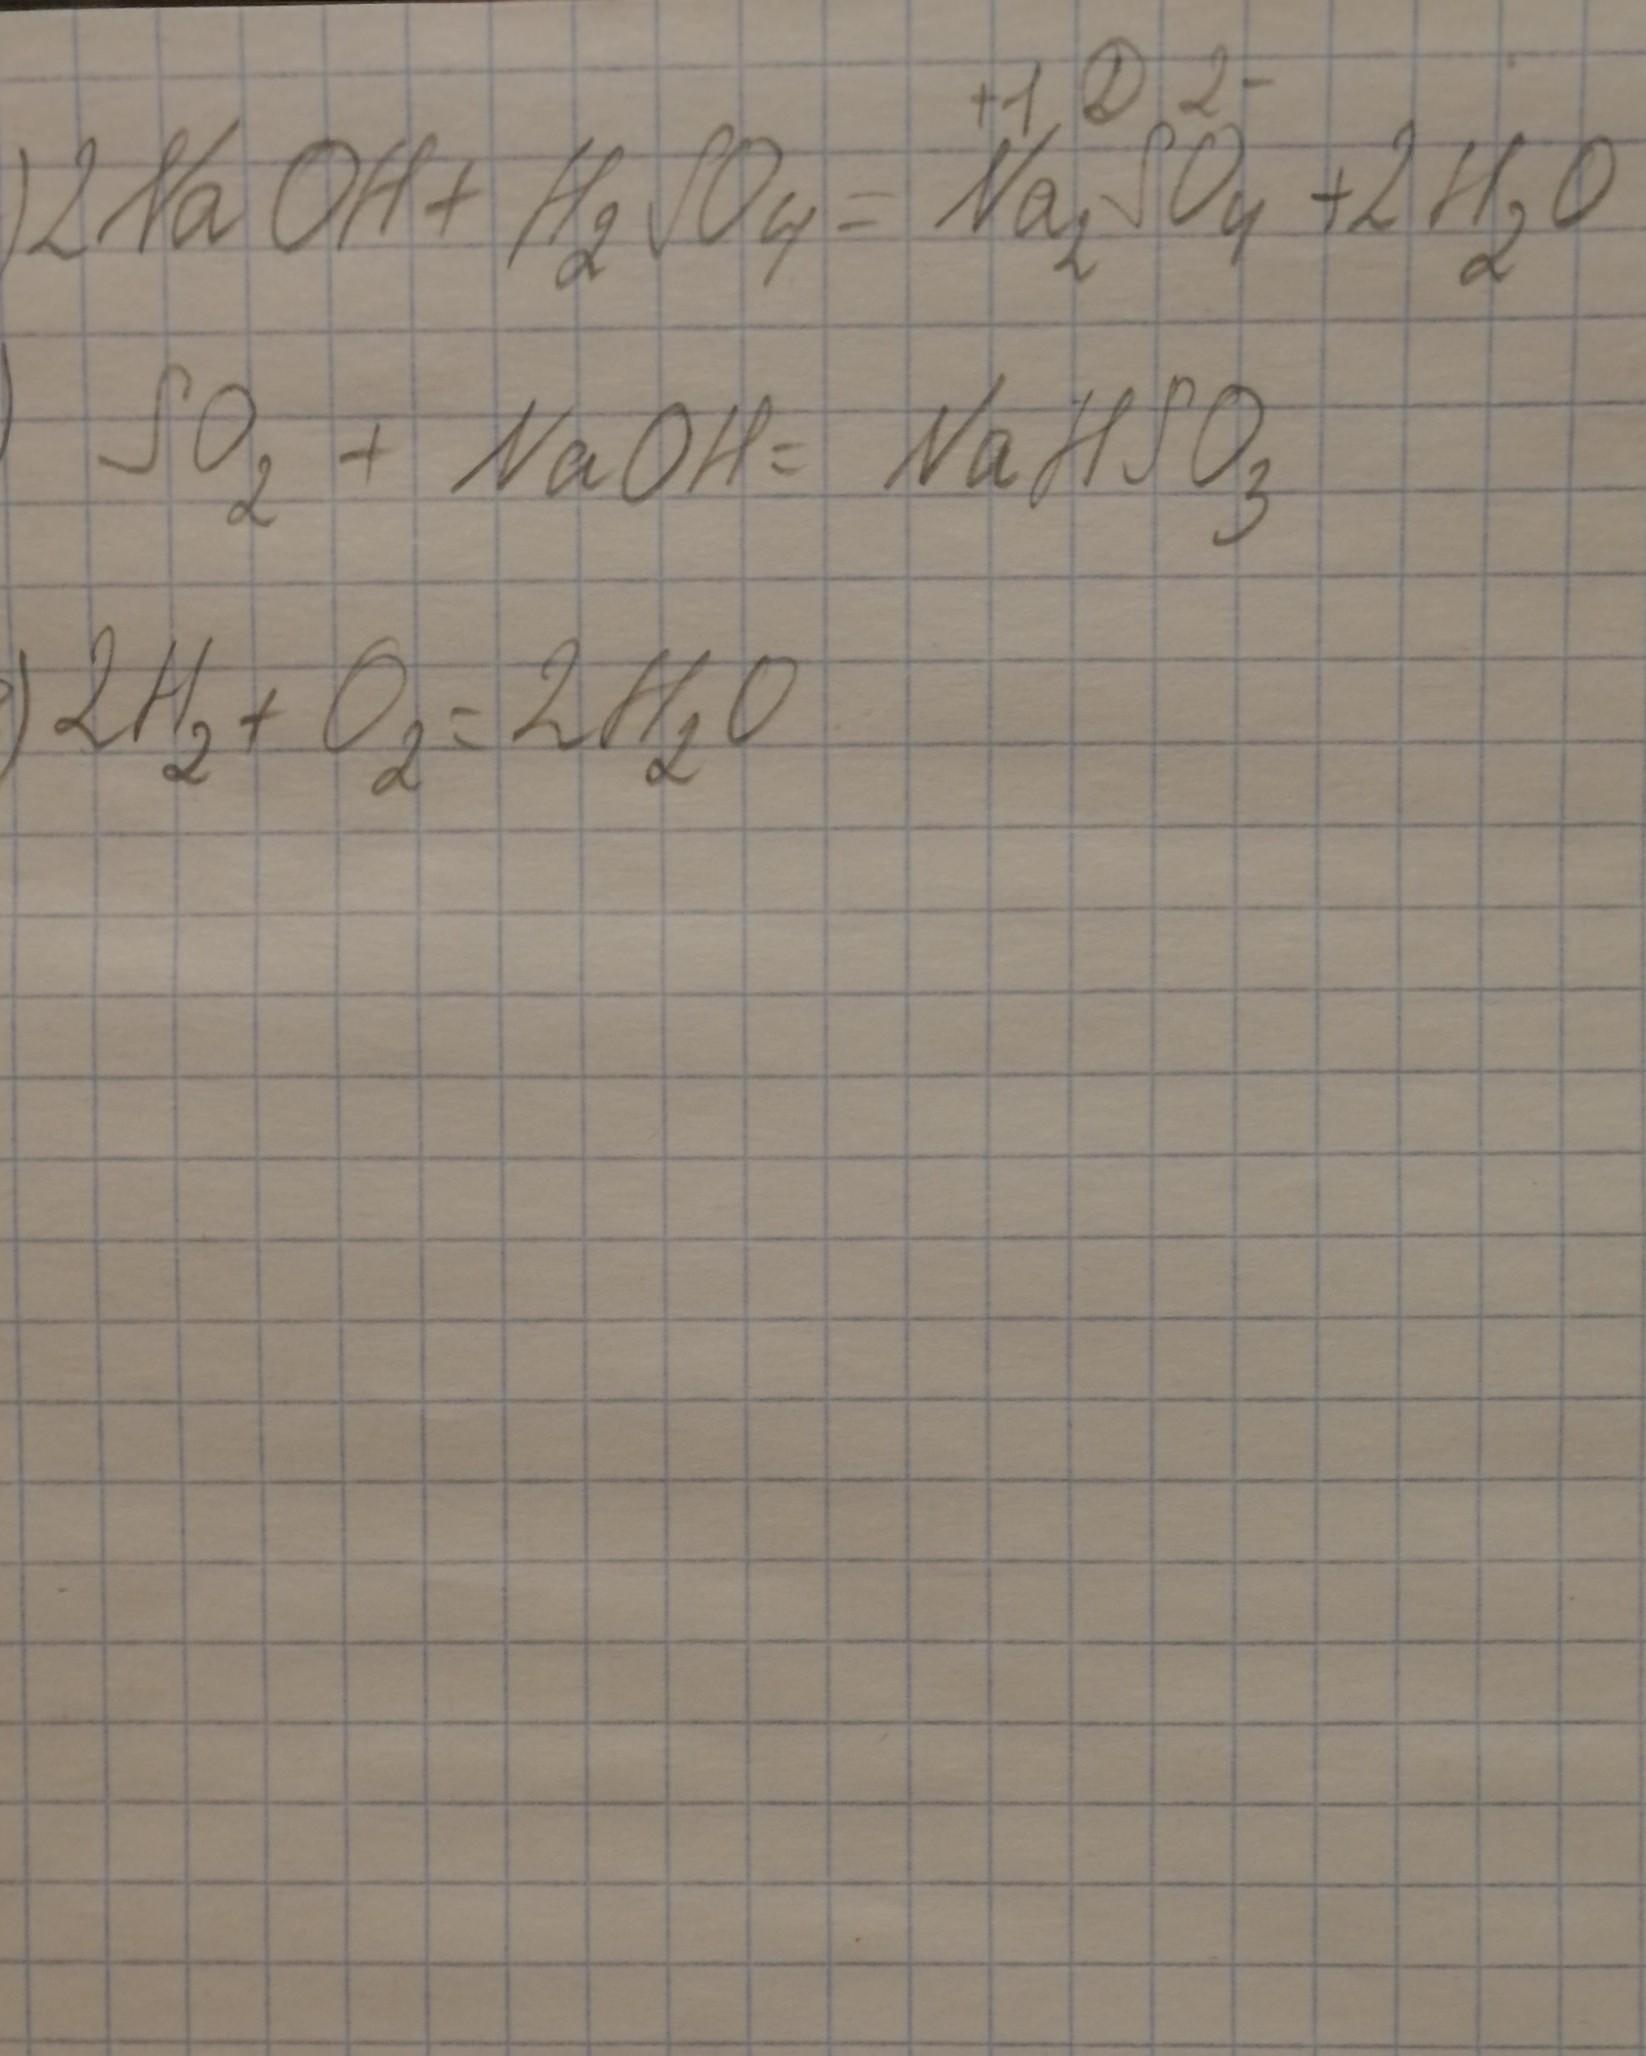 +1 ② 2-
)2NaOH + H₂SO₄ = Na₂SO₄ + 2H₂O
) SO₂ + NaOH = NaHSO₃
) 2H₂ + O₂ = 2H₂O